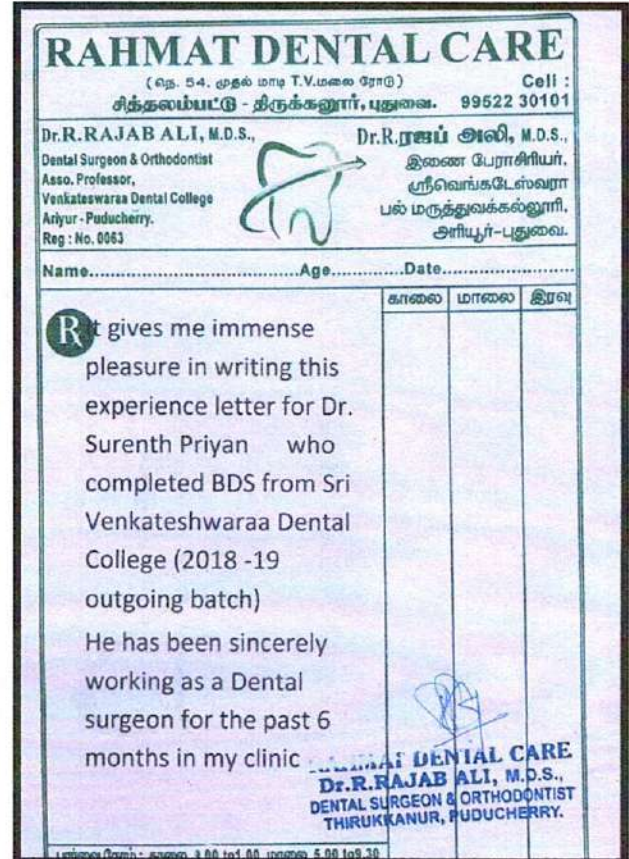 RAHMAT DENTAL CARE
(நெ. 54, முதல் மாடி T.V.மலை ரோடு)
Cell :
சித்தலம்பட்டு - திருக்கனூர், புதுவை. 99522 30101
Dr.R.RAJAB ALI, M.D.S.,
Dental Surgeon & Orthodontist
Asso. Professor,
Venkateswaraa Dental College
Ariyur - Puducherry.
Reg : No. 0063
Dr.R.ரஜப் அலி, M.D.S.,
இணை பேராசிரியர்,
ஸ்ரீவெங்கடேஸ்வரா
பல் மருத்துவக்கல்லூரி,
அரியூர்-புதுவை.
Name.............................Age............Date......................
காலை மாலை இரவு
R
It gives me immense
pleasure in writing this
experience letter for Dr.
Surenth Priyan who
completed BDS from Sri
Venkateshwaraa Dental
College (2018 -19
outgoing batch)
He has been sincerely
working as a Dental
surgeon for the past 6
months in my clinic
RAHMAT DENTAL CARE
Dr.R.RAJAB ALI, M.D.S.,
DENTAL SURGEON & ORTHODONTIST
THIRUKKANUR, PUDUCHERRY.
காலை 9.00 to1.00 மாலை 5.00 to9.30